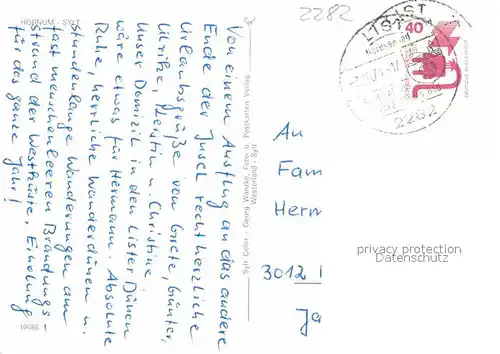 HÖRNUM - SYLT
Von einem Ausflug an das andere
Ende der Insel recht herzliche
Urlaubsgrüße von Grete, Günter,
Ulrike, Kerstin u. Christine.
Unser Domizil in den Lister Dünen
wäre etwas für Hermann. Absolute
Ruhe, herrliche Wanderdünen u.
stundenlange Wanderungen am
fast menschenleeren Brandungs
strand der Westküste, Erholung
für das ganze Jahr!
10688 1
Sylt Color - Georg Wanzke, Foto- u. Postkarten Verlag
Westerland - Sylt
2282
LIST
LIST
2282
40
DEUTSCHE BUNDESPOST
An
Fam
Herm
3012 l
Ja
privacy protection
Datenschutz